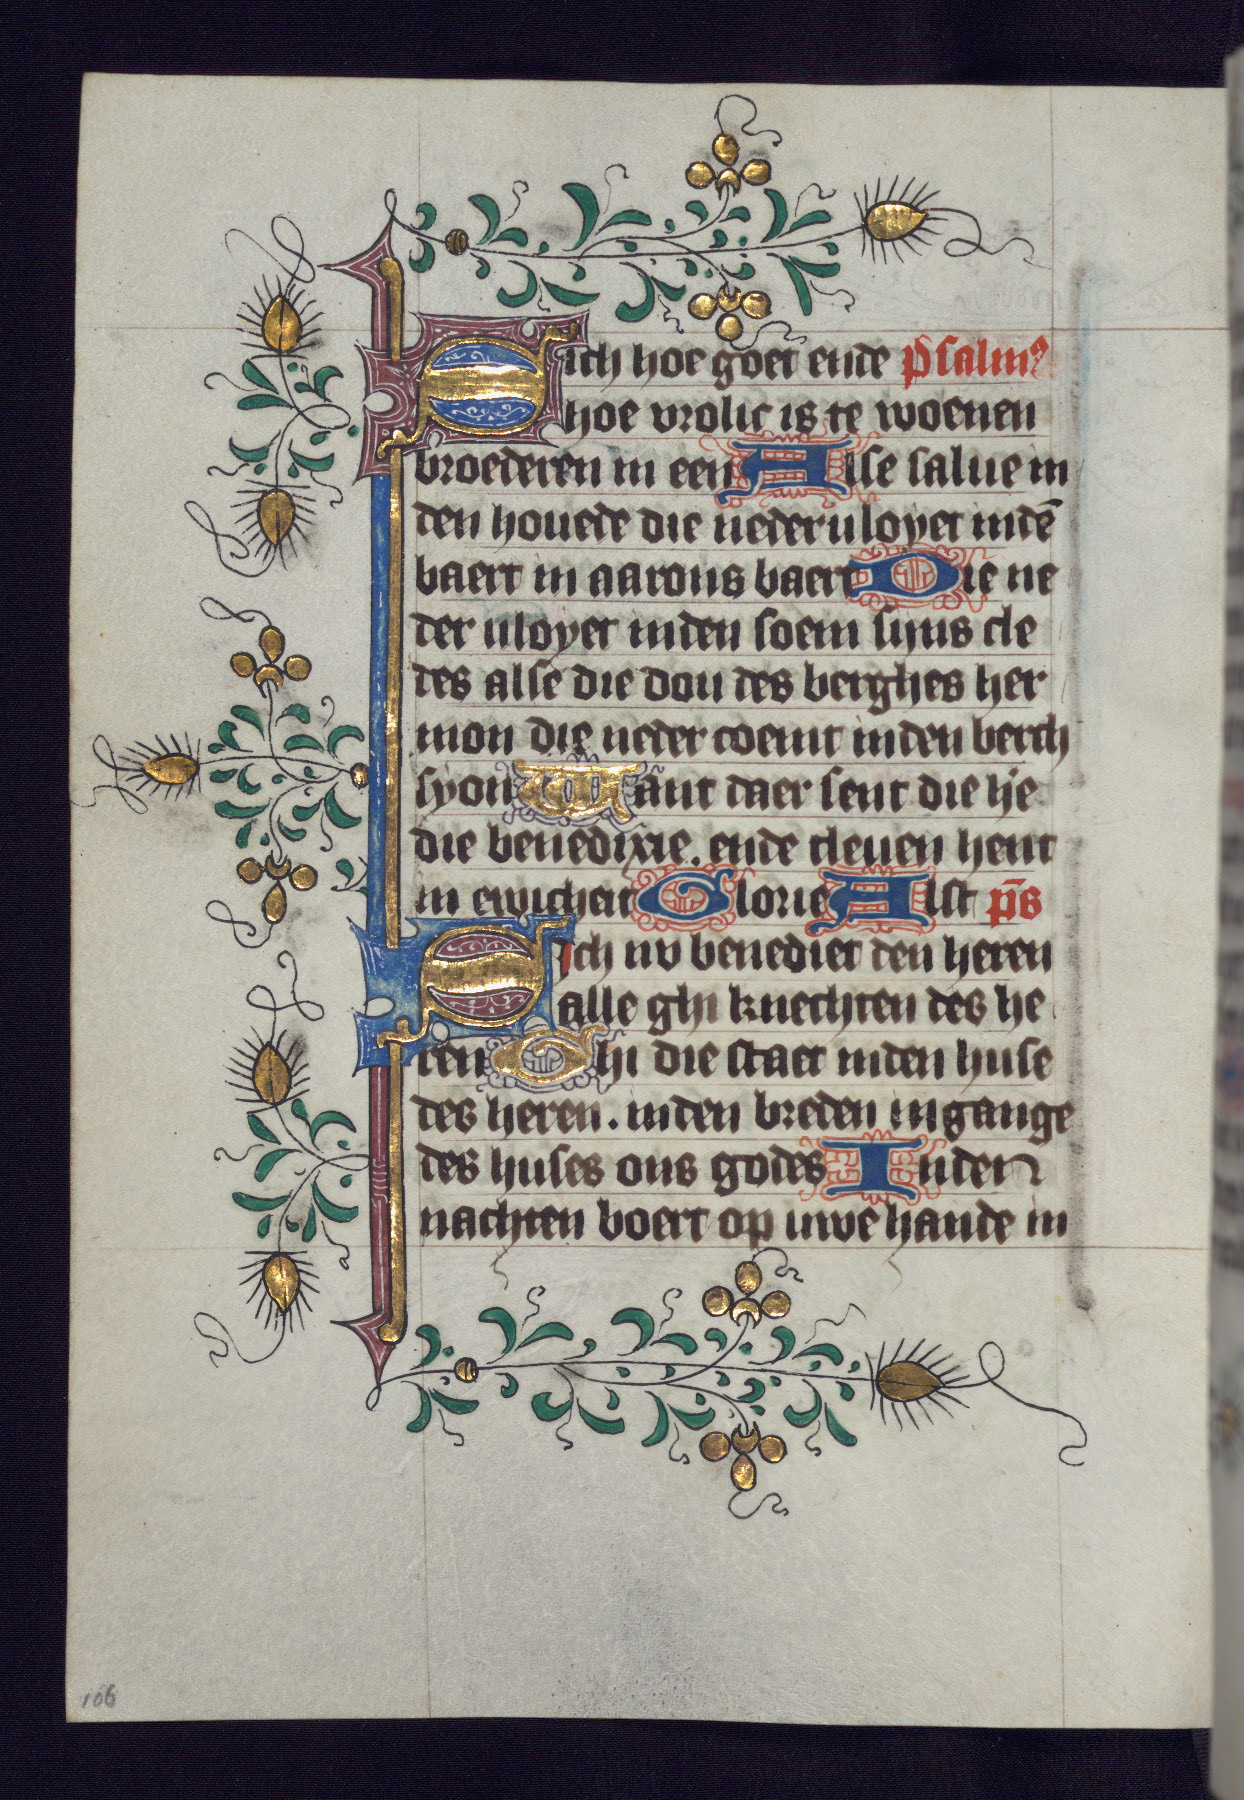 Sich hoe goet ende psalmꝰ
hoe vrolic is te woenen
broederen in een Alse salue in
den houede die neder uloyet indē
baert in aarons baert Die ne
der uloyet inden soem sijns cle
des alse die dou des berghes her
mon die neder coemt inden berch
syon Want daer sent die h'e
die benedixie. ende tleuen hent
in ewicheit Glorie Alst p̄s
Sich nv benediet den heren
alle ghi knechten des he
ren Ghi die staet inden huse
des heren. inden breden ingange
des huses ons godes Inder
nachten boert op uwe hande in
106